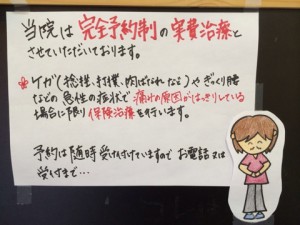 当院は完全予約制の実費治療と
させていただいております。
※ケガ(捻挫、打撲、肉ばなれなど)やぎっくり腰
などの急性の症状で痛みの原因がはっきりしている
場合に限り保険治療を行います。
予約は随時受け付けていますのでお電話又は
受付まで…